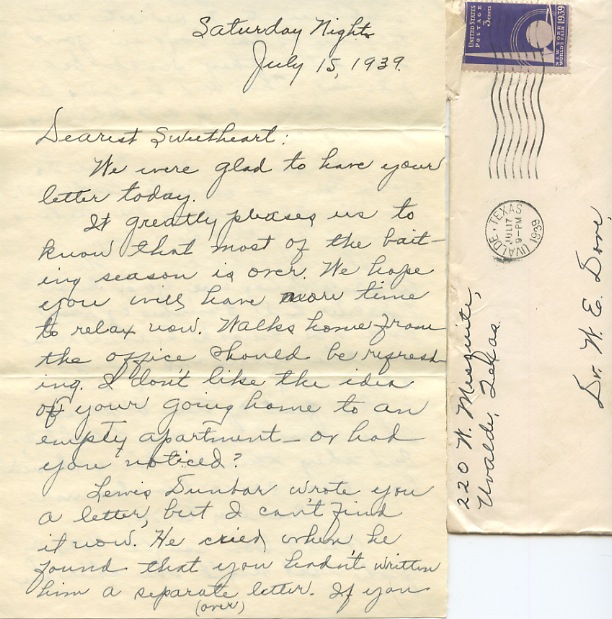 Saturday Night
July 15, 1939.
Dearest Sweetheart:
We were glad to have your
letter today.
It greatly pleases us to
know that most of the bait-
ing season is over. We hope
you will have more time
to relax now. Walks home from
the office should be refresh-
ing. I don't like the idea
of your going home to an
empty apartment — or had
you noticed?
Lewis Dunbar wrote you
a letter, but I can't find
it now. He cried when he
found that you hadn't written
him a separate letter. If you
(over)
UNITED STATES
POSTAGE
3 CENTS
NEW YORK
WORLD'S FAIR
1939
UVALDE, TEXAS
JUL 17
9 - PM
1939
Dr. W. E. Dove
220 W. Mesquite,
Uvalde, Texas.